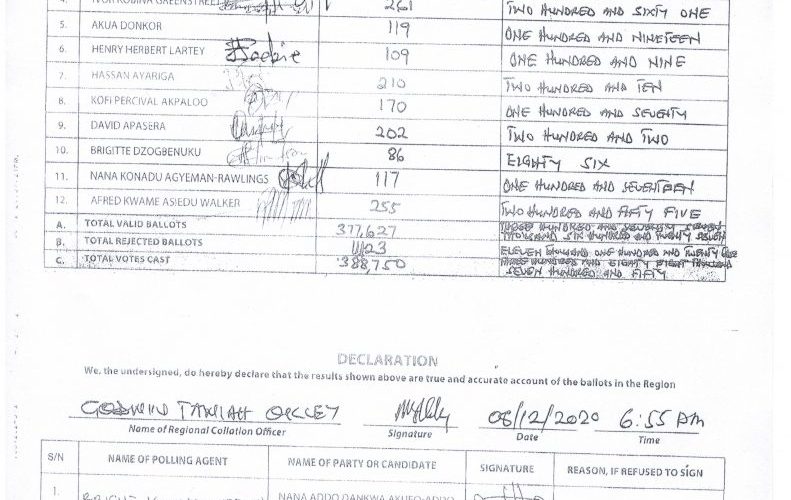 4. 261 TWO HUNDRED AND SIXTY ONE
5. AKUA DONKOR 119 ONE HUNDRED AND NINETEEN
6. HENRY HERBERT LARTEY 109 ONE HUNDRED AND NINE
7. HASSAN AYARIGA 210 TWO HUNDRED AND TEN
8. KOFI PERCIVAL AKPALOO 170 ONE HUNDRED AND SEVENTY
9. DAVID APASERA 202 TWO HUNDRED AND TWO
10. BRIGITTE DZOGBENUKU 86 EIGHTY SIX
11. NANA KONADU AGYEMAN-RAWLINGS 117 ONE HUNDRED AND SEVENTEEN
12. AFRED KWAME ASIEDU WALKER 255 TWO HUNDRED AND FIFTY FIVE
A. TOTAL VALID BALLOTS 377,627 THREE HUNDRED AND SEVENTY SEVEN
THOUSAND SIX HUNDRED AND TWENTY SEVEN
B. TOTAL REJECTED BALLOTS 11,123 ELEVEN THOUSAND ONE HUNDRED AND TWENTY
C. TOTAL VOTES CAST 388,750 THREE HUNDRED AND EIGHTY EIGHT THOUSAND
SEVEN HUNDRED AND FIFTY
DECLARATION
We, the undersigned, do hereby declare that the results shown above are true and accurate account of the ballots in the Region
08/12/2020 6:55 PM
Name of Regional Collation Officer Signature Date Time
S/N NAME OF POLLING AGENT NAME OF PARTY OR CANDIDATE SIGNATURE REASON, IF REFUSED TO SIGN
1. NANA ADDO DANKWA AKUFO-ADDO